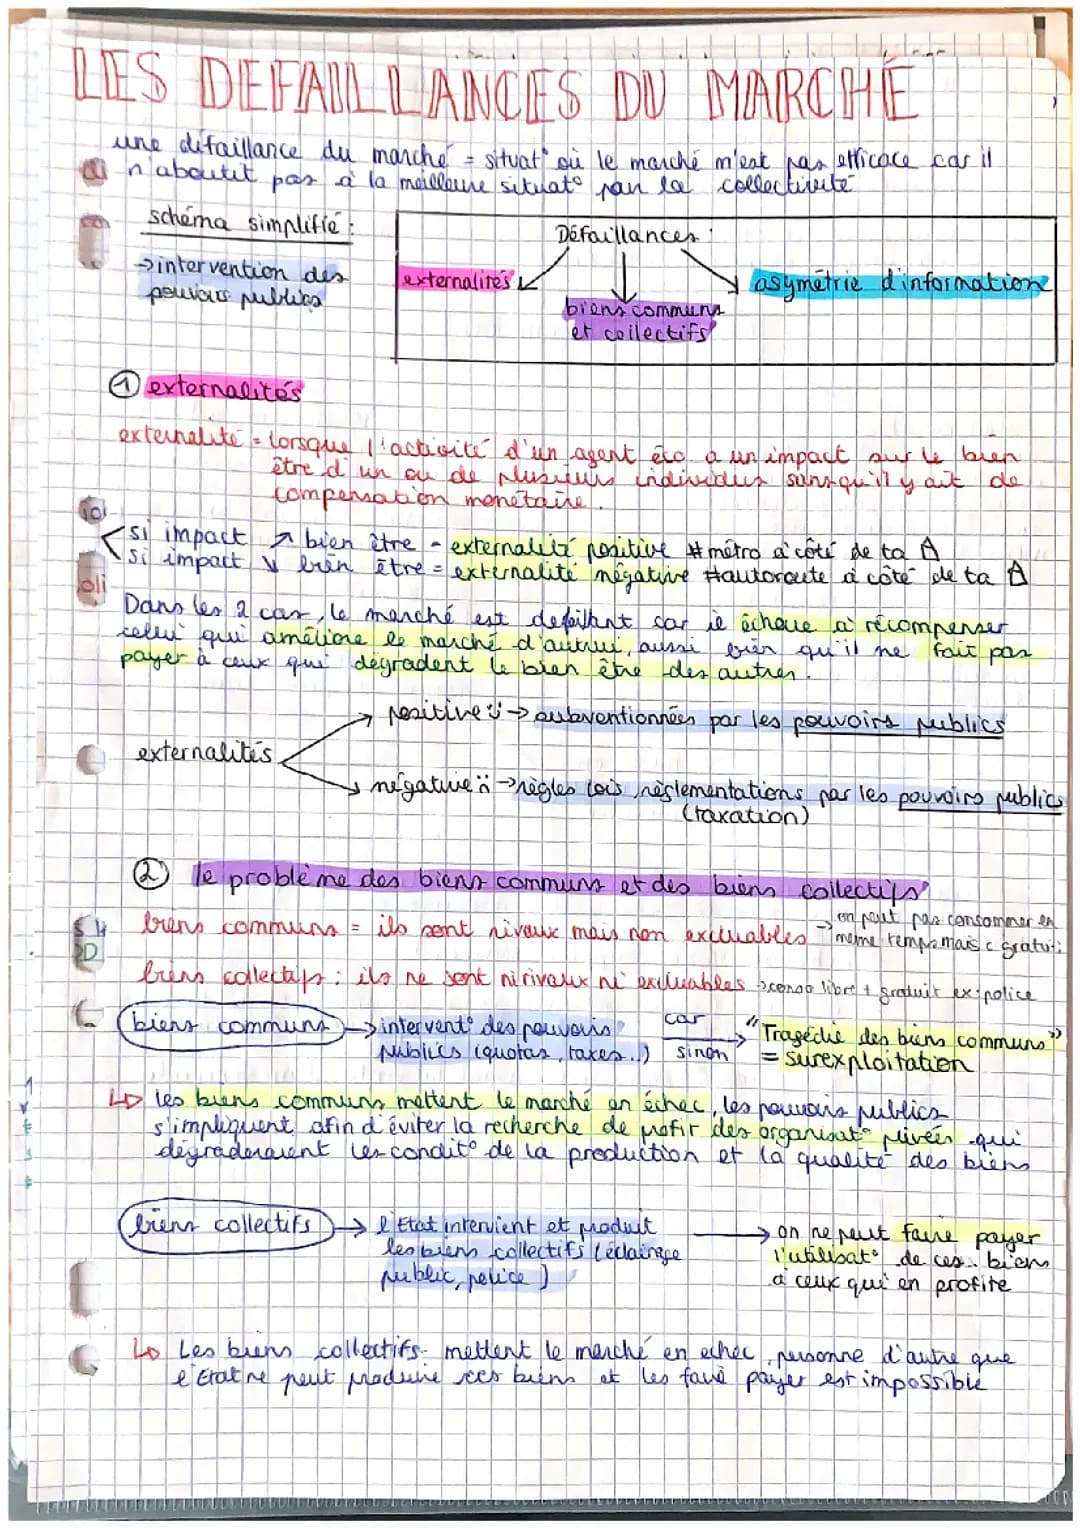 LES DEFAILLANCES DU MARCHÉ
une défaillance du marché = situat° où le marché n'est pas efficace car il
n'aboutit pas à la meilleure situat° pour la collectivité
schéma simplifié :
→ intervention des
pouvoirs publics
Défaillances :
externalités
biens communs
et collectifs
asymétrie d'information
① externalités
externalité = lorsque l'activité d'un agent éco a un impact sur le bien
être d'un ou de plusieurs individus sans qu'il y ait de
compensation monétaire.
si impact ↗ bien être = externalité positive #métro à côté de ta
si impact ↘ bien être = externalité négative #autoroute à côté de ta
Dans les 2 cas, le marché est défaillant car il échoue à récompenser
celui qui améliore le marché d'autrui, aussi bien qu'il ne fait pas
payer à ceux qui dégradent le bien être des autres.
positive → subventionnées par les pouvoirs publics
externalités
négative → règles lois, réglementations par les pouvoirs publics
(taxation)
② le problème des biens communs et des biens collectifs
biens communs = ils sont rivaux mais non excluables → on peut pas consommer en
même temps mais c gratuit
biens collectifs : ils ne sont ni rivaux ni excluables → libre + gratuit ex : police
biens communs → intervent° des pouvoirs
publics (quotas, taxes..)
car
sinon
"Tragédie des biens communs"
= surexploitation
↳ les biens communs mettent le marché en échec, les pouvoirs publics
s'impliquent afin d'éviter la recherche de profit des organisat° privées qui
dégraderaient les condit° de la production et la qualité des biens
biens collectifs → l'Etat intervient et produit
les biens collectifs (éclairage
public, police)
→ on ne peut faire payer
l'utilisat° de ces biens
à ceux qui en profite
↳ Les biens collectifs mettent le marché en echec, personne d'autre que
l'Etat ne peut produire ces biens et les faire payer est impossible